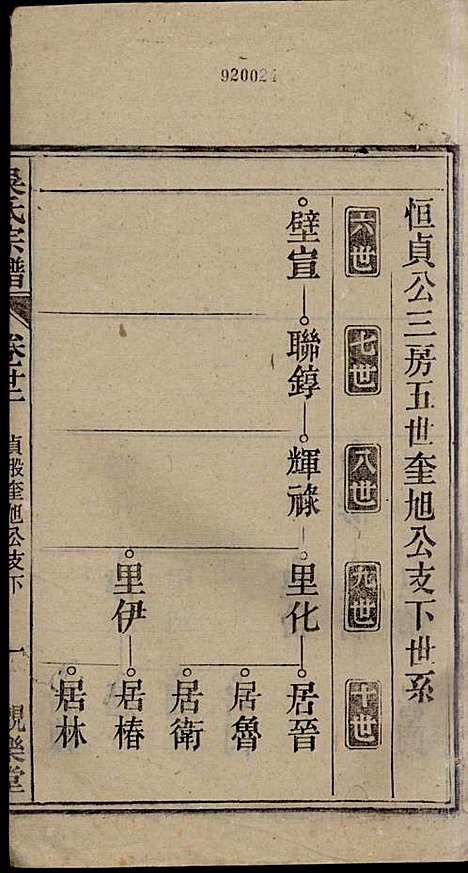 920024
恒貞公三房五世奎旭公支下世系
六世
七世
八世
九世
十世
壁宣
聯錞
輝祿
里化
里伊
居晉
居魯
居衛
居椿
居林
吳氏宗譜
卷廿二
貞股奎旭公支下
一
觀樂堂